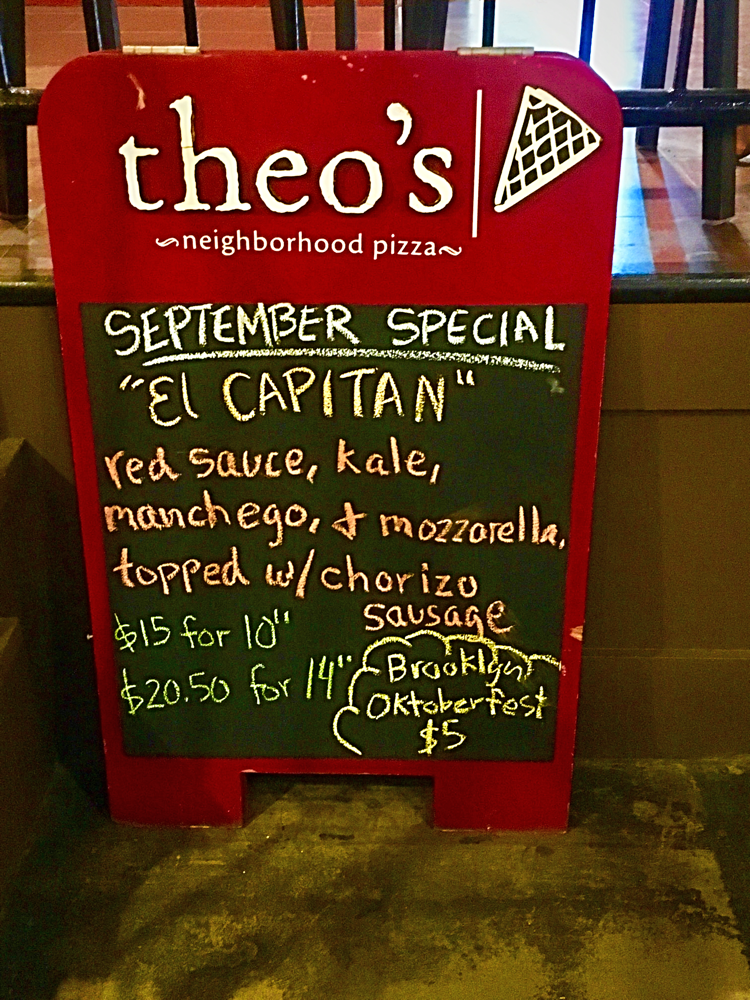 theo's
~neighborhood pizza~
SEPTEMBER SPECIAL
"El CAPITAN"
red sauce, kale,
manchego, & mozzarella,
topped w/chorizo
sausage
$15 for 10"
$20.50 for 14"
Brooklyn
Oktoberfest
$5